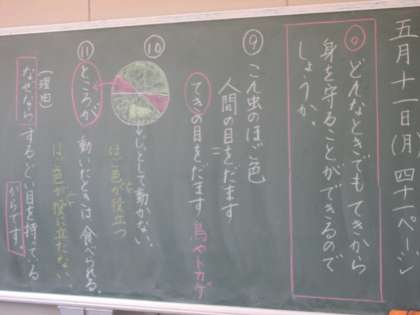 五月十一日(月)四十一ページ
どんなときでもてきから
身を守ることができるので
しょうか。
⑨ こん虫のほご色
人間の目をだます
てきの目をだます 鳥やトカゲ
⑩ じっとして動かない。
ほご色が役立つ
⑪ ところが 動いたときは食べられる。
ほご色が役に立たない。
(理由)
なぜなら するどい目を持っている
からです。